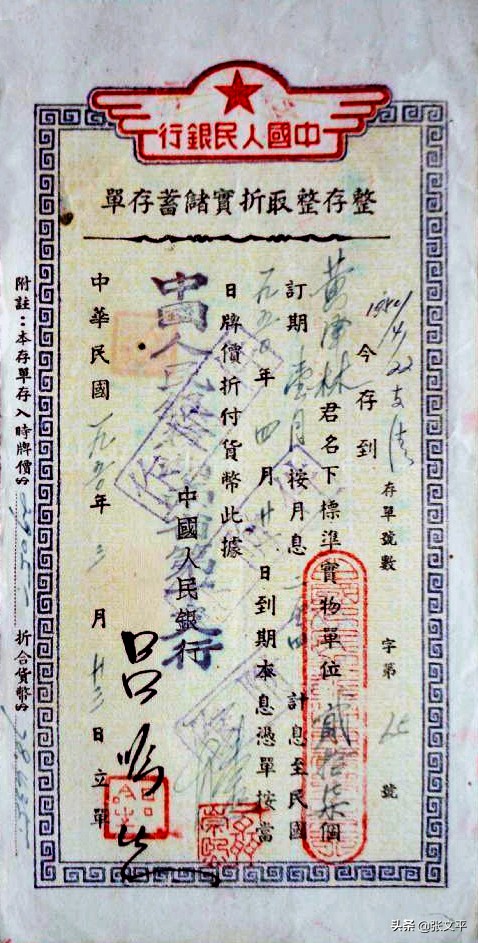 中國人民銀行
整存整取折實儲蓄存單
存單號數 字第 號
今存到
黃澤林君名下標準實物單位貳拾柒個
訂期壹月按月息 計息至民國
一九五〇年四月廿 日到期本息憑單按當
日牌價折付貨幣此據
中國人民銀行
中國人民
中華民國一九五〇年三月廿三日立單
附註：本存單存入時牌價$ 折合貨幣$
头条 @张文平